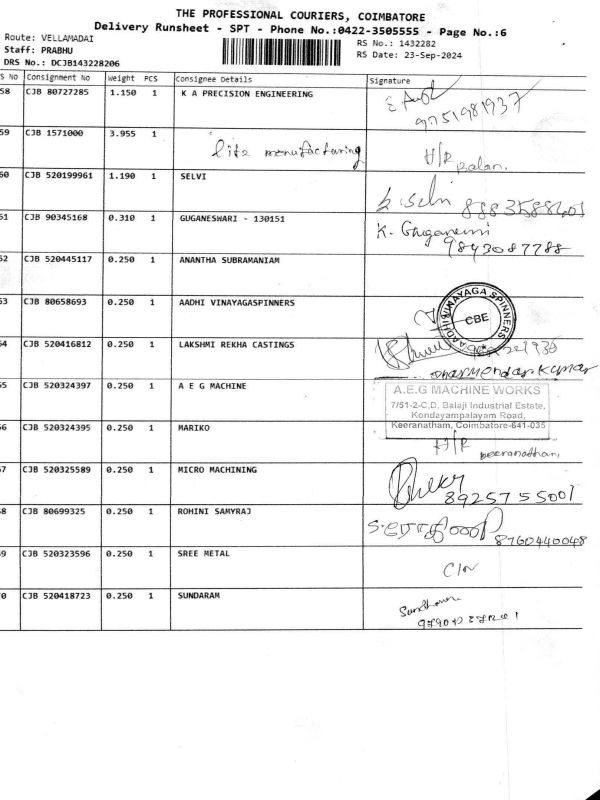 THE PROFESSIONAL COURIERS, COIMBATORE
Delivery Runsheet - SPT - Phone No.:0422-3505555 - Page No.:6
Route: VELLAMADAI
Staff: PRABHU
DRS No.: DCJB143228206
RS No.: 1432282
RS Date: 23-Sep-2024
S No Consignment No Weight PCS Consignee Details Signature
58 CJB 80727285 1.150 1 K A PRECISION ENGINEERING
9751981937
59 CJB 1571000 3.955 1 life manufacturing H/R Balan.
60 CJB 520199961 1.190 1 SELVI
8883588601
61 CJB 90345168 0.310 1 GUGANESWARI - 130151 K. Guganeswari
9843087788
62 CJB 520445117 0.250 1 ANANTHA SUBRAMANIAM
63 CJB 80658693 0.250 1 AADHI VINAYAGASPINNERS
AADHI VINAYAGA SPINNERS
CBE
64 CJB 520416812 0.250 1 LAKSHMI REKHA CASTINGS
Dharmendar. Kumar
65 CJB 520324397 0.250 1 A E G MACHINE
A.E.G MACHINE WORKS
7/51-2-C,D, Balaji Industrial Estate,
Kondayampalayam Road,
Keeranatham, Coimbatore-641-035
66 CJB 520324395 0.250 1 MARIKO H/R
keeranatham,
67 CJB 520325589 0.250 1 MICRO MACHINING
8925755001
68 CJB 80699325 0.250 1 ROHINI SAMYRAJ
S.ரோகிணி
8760440048
69 CJB 520323596 0.250 1 SREE METAL
70 CJB 520418723 0.250 1 SUNDARAM